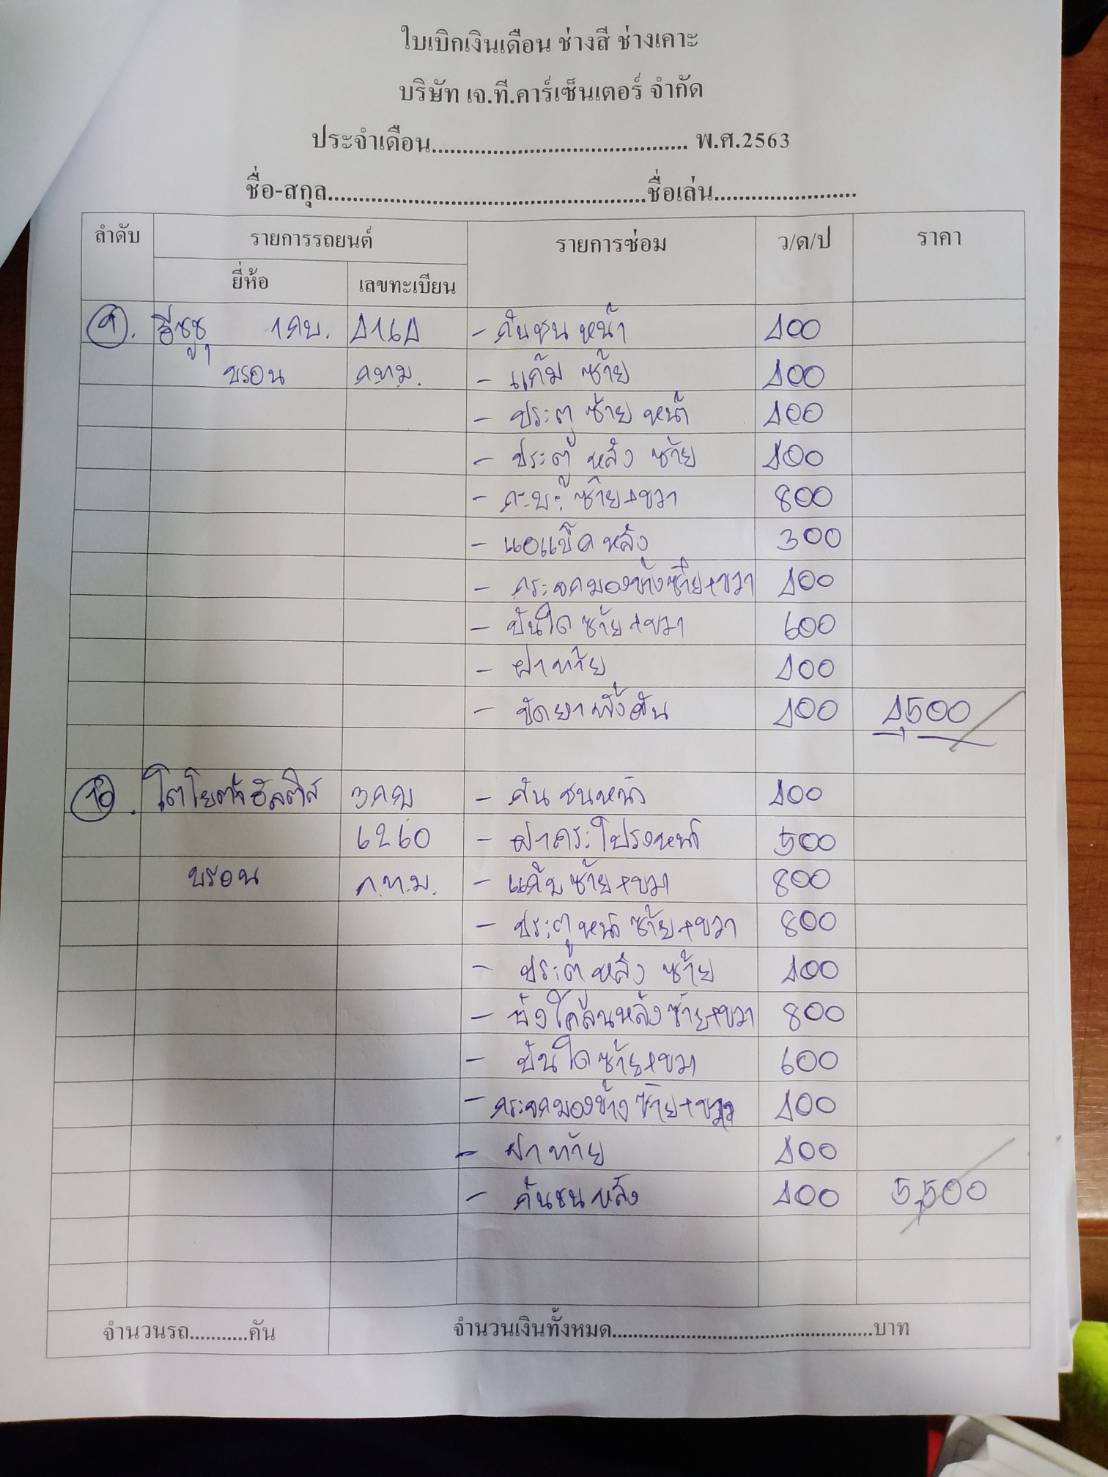 ใบเบิกเงินเดือน ช่างสี ช่างเคาะ
บริษัท เจ.ที.คาร์เซ็นเตอร์ จำกัด
ประจำเดือน........................................... พ.ศ.2563
ชื่อ-สกุล.....................................................ชื่อเล่น........................
ลำดับ รายการรถยนต์ รายการซ่อม ว/ด/ป ราคา
ยี่ห้อ เลขทะเบียน
9. อีซูซุ 1คบ. 4164 - กันชนหน้า 400
บรอน ก.ท.ม. - แก้ม ซ้าย 400
- ประตู ซ้าย หน้า 400
- ประตู หลัง ซ้าย 400
- กะบะ ซ้าย+ขวา 800
- แอแบ็ค หลัง 300
- กระจกมองข้างซ้าย+ขวา 400
- บันได ซ้าย+ขวา 600
- ฝาท้าย 400
- ขัดยาทั้งคัน 400 4,500
10. โตโยต้าอัลติส 3กข - กันชนหน้า 400
6260 - ฝากระโปรงหน้า 500
บรอน ก.ท.ม. - แก้ม ซ้าย+ขวา 800
- ประตูหน้า ซ้าย+ขวา 800
- ประตู หลัง ซ้าย 400
- บังโคลนหลัง ซ้าย+ขวา 800
- บันได ซ้าย+ขวา 600
- กระจกมองข้าง ซ้าย+ขวา 400
- ฝาท้าย 400
- กันชน หลัง 400 5,500
จำนวนรถ...........คัน จำนวนเงินทั้งหมด.....................................................บาท